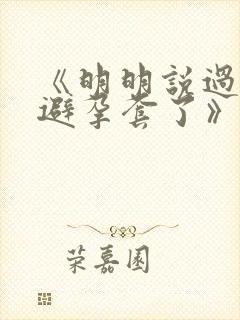 《明明説過
避孕套了》
荣嘉園